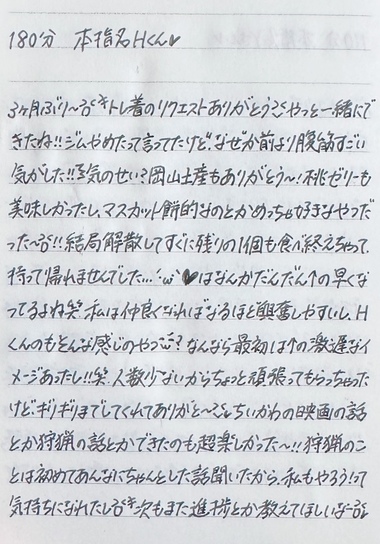 180分 本指名Hくん♥
3ヶ月ぶり〜トレ着のリクエストありがとう やっと一緒に
できたね!!ジムやめたって言ってたけど、なぜか前より腹筋すごい
気がした!!気のせい?岡山土産もありがとう〜!桃ゼリーも
美味しかったし、マスカット餅的なのとかめっちゃ好きなやつだ
った〜!!結局解散してすぐに残りの1個も食べ終えちゃって、
持って帰れませんでした...'ω' ♥はなんかだんだん↑の早くな
ってるよね笑 私は仲良くなればなるほど興奮しやすいし、H
くんのもそんな感じのやつ?なんなら最初は↑の激遅なイ
メージあったし!!笑 人数少ないからちょっと頑張ってもらっちゃった
けどギリギリまでしてくれてありがと〜 ちいかわの映画の話
とか狩猟の話とかできたのも超楽しかった〜!!狩猟のこ
とは初めてあんなにちゃんとした話聞いたから、私もやろう!って
気持ちになれたし 次もまた進捗とか教えてほしいな〜